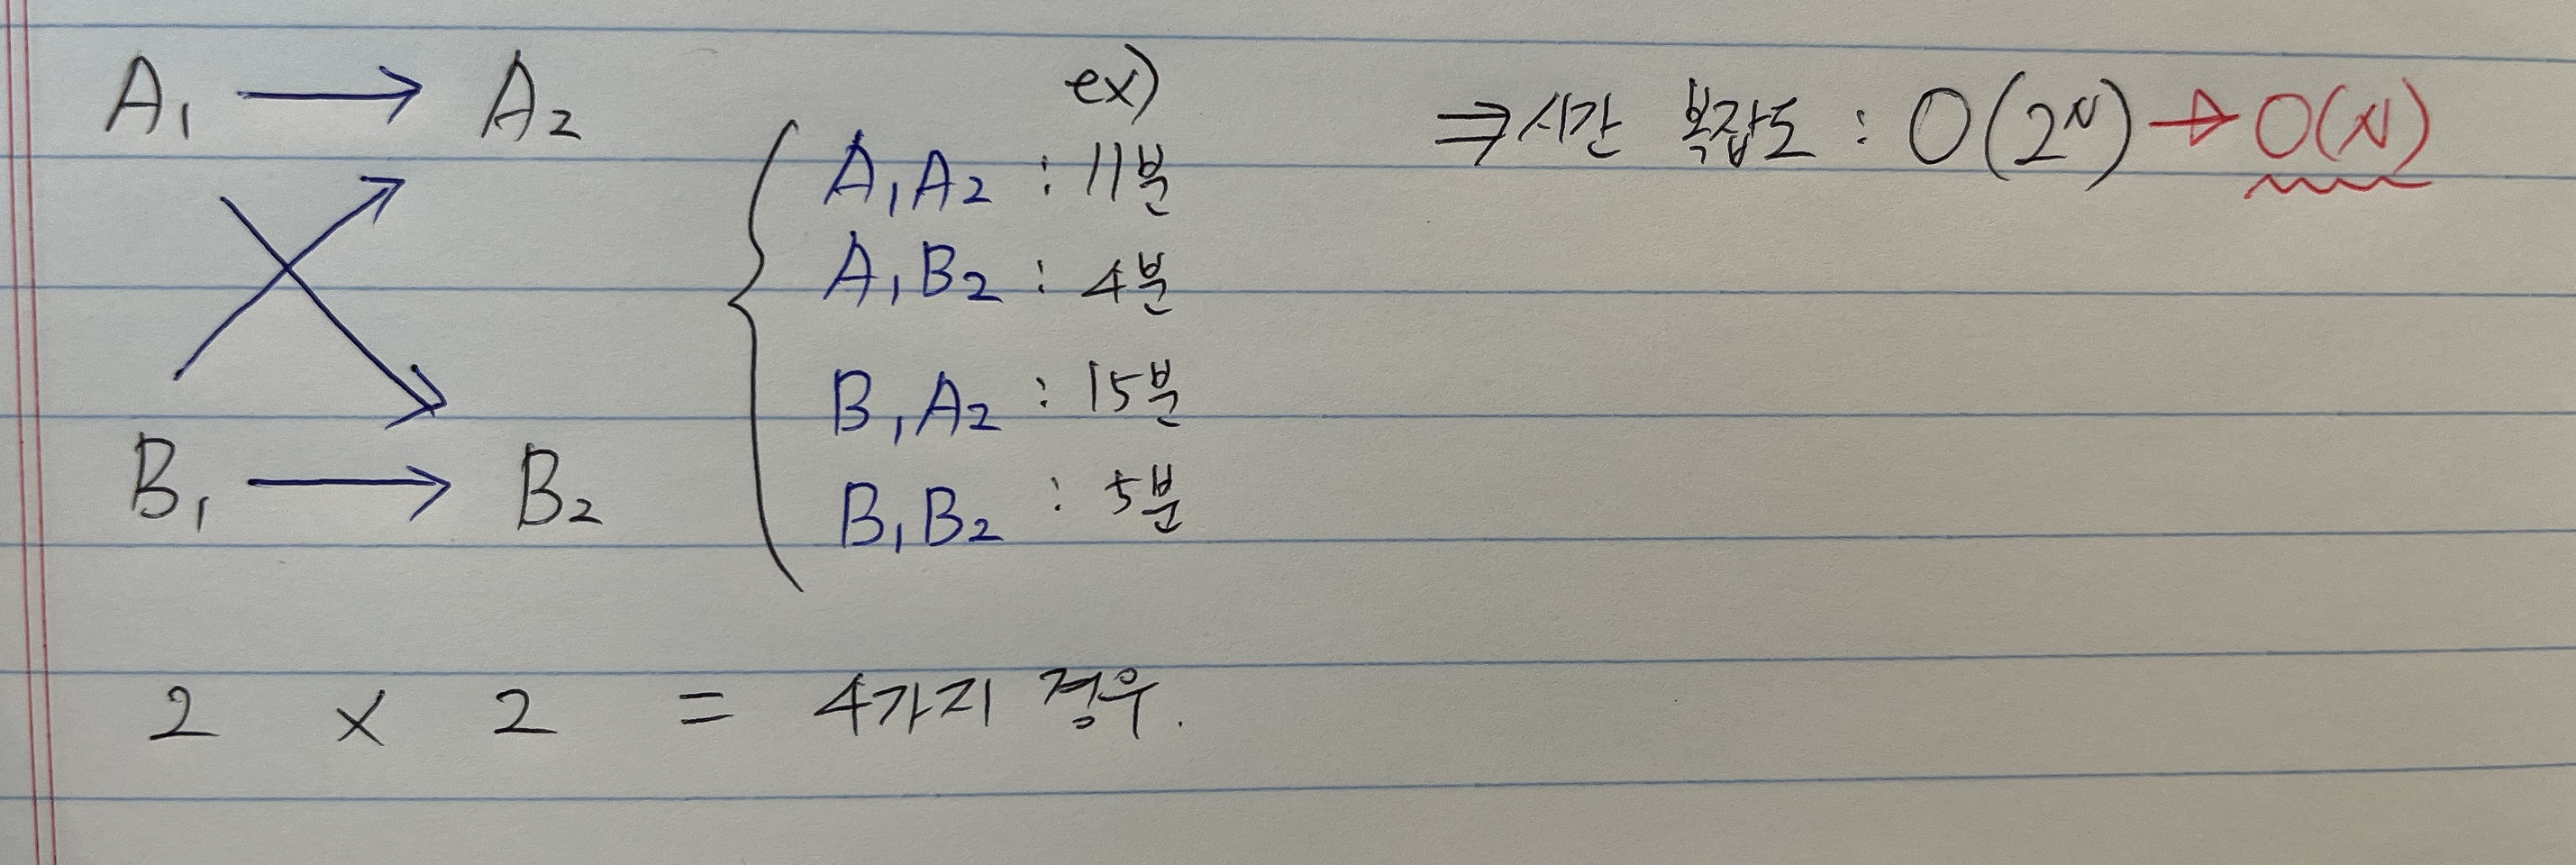 A₁ → A₂
B₁ → B₂
ex)
A₁A₂ : 11분
A₁B₂ : 4분
B₁A₂ : 15분
B₁B₂ : 5분
⇒ 시간 복잡도 : O(2ᴺ) → O(N)
2 × 2 = 4가지 경우.